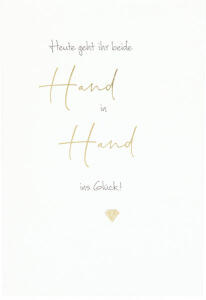 Heute geht ihr beide
Hand
in
Hand
ins Glück!